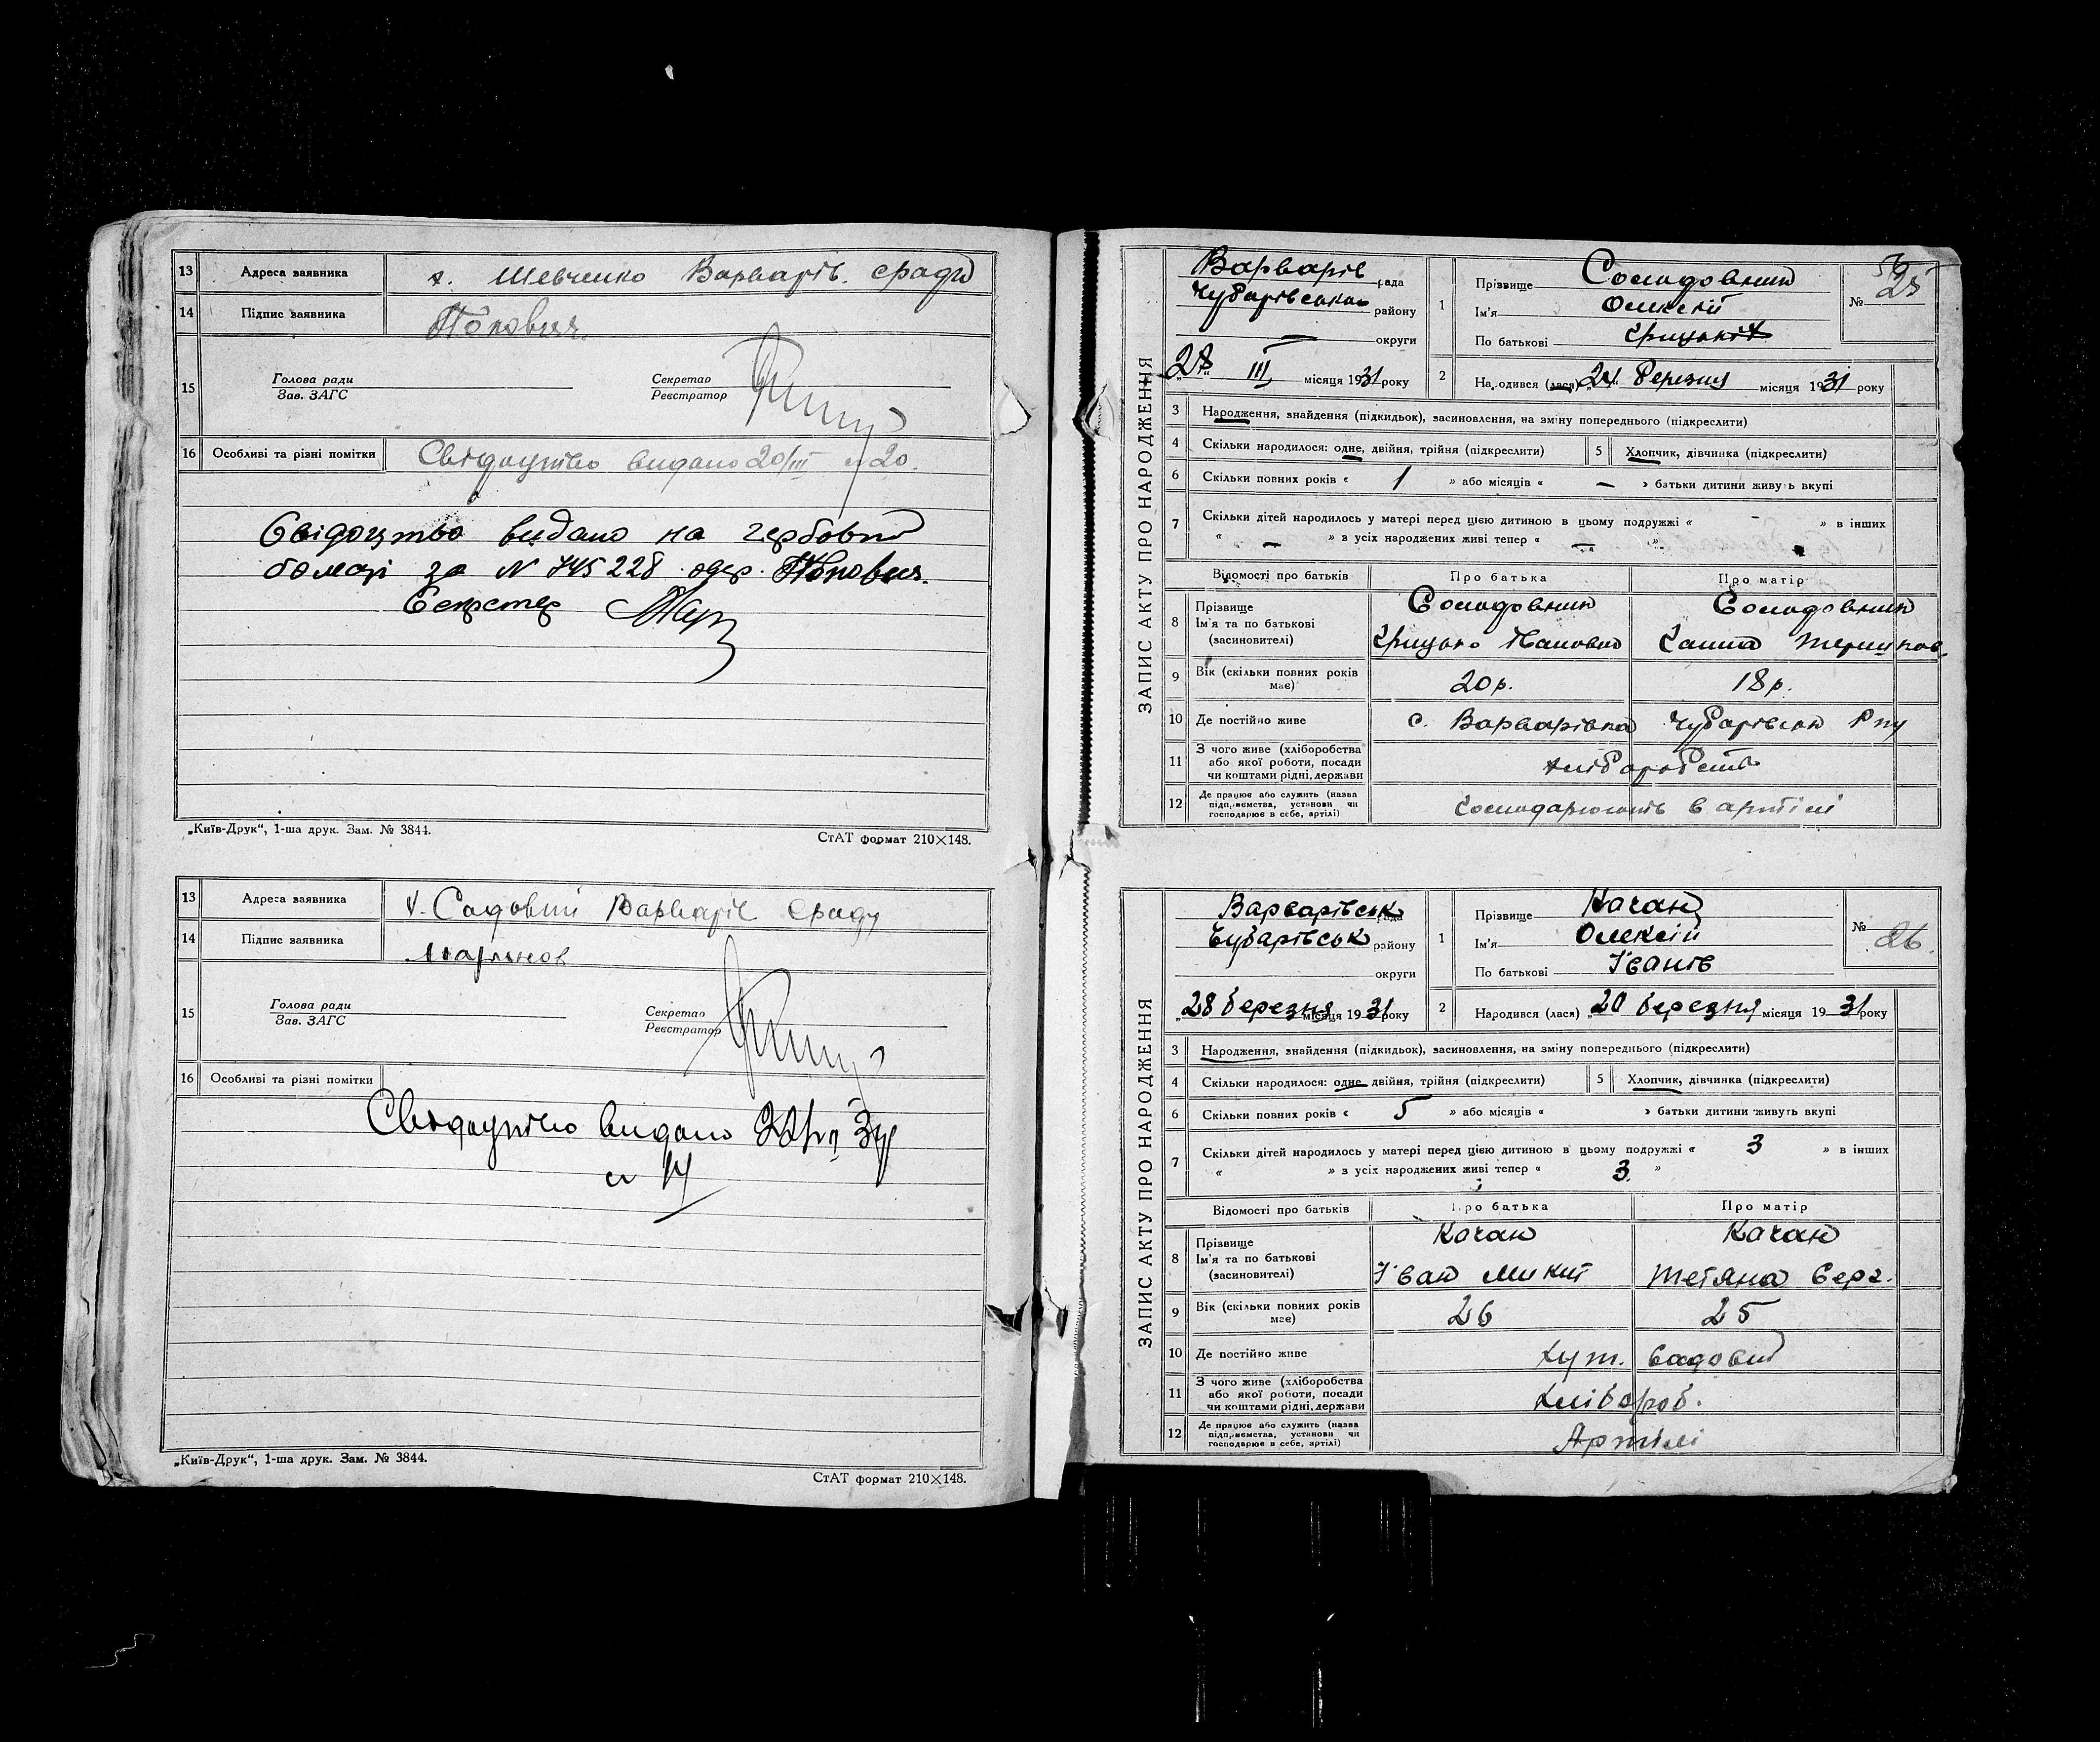 13 Адреса заявника х. Шевченко Варварів. сради
14 Підпис заявника Попович
15 Голова ради
Зав. ЗАГС
Секретар
Реєстратор
16 Особливі та різні помітки Свідоцтво видано 20/III 20.
Свідоцтво видано на гербовій
бомазі за N 745228 одер. Попович.
Секретар
„Київ-Друк“, 1-ша друк. Зам. № 3844.
СтАТ формат 210×148.
13 Адреса заявника х. Садовий Варварів сради
14 Підпис заявника
15 Голова ради
Зав. ЗАГС
Секретар
Реєстратор
16 Особливі та різні помітки
Свідоцтво видано
„Київ-Друк“, 1-ша друк. Зам. № 3844.
СтАТ формат 210×148.
ЗАПИС АКТУ ПРО НАРОДЖЕННЯ
Варварів рада
Чубарівського району
— округи
„28“ III місяця 1931 року
1 Прізвище Солодовник
Ім'я Олексій
По батькові
№ 25
2 Народився (лася) „24. Березня місяця 1931 року
3 Народження, знайдення (підкидьок), засиновлення, на зміну попереднього (підкреслити)
4 Скільки народилося: одне, двійня, трійня (підкреслити)
5 Хлопчик, дівчинка (підкреслити)
6 Скільки повних років « 1 » або місяців « — » батьки дитини живуть вкупі
7 Скільки дітей народилось у матері перед цією дитиною в цьому подружжі « — » в інших
« — » з усіх народжених живі тепер « — »
Відомості про батьків Про батька Про матір
8 Прізвище
Ім'я та по батькові
(засиновителі)
Солодовник Солодовник
Грицько Панович Ганна
9 Вік (скільки повних років має) 20р. 18р.
10 Де постійно живе с. Варварівка Чубарівськ Р-ну
11 З чого живе (хліборобства
або якої роботи, посади
чи коштами рідні, держави
хліборобств
12 Де працює або служить (назва
підприємства, установи чи
господарює в себе, артілі)
Господарюють в артілі
ЗАПИС АКТУ ПРО НАРОДЖЕННЯ
Варварівськ рада
Чубарівськ району
округи
„28 березня місяця 1931 року
1 Прізвище Качан
Ім'я Олексій
По батькові Іванів
№ 26.
2 Народився (лася) „20 березня місяця 1931 року
3 Народження, знайдення (підкидьок), засиновлення, на зміну попереднього (підкреслити)
4 Скільки народилося: одне, двійня, трійня (підкреслити)
5 Хлопчик, дівчинка (підкреслити)
6 Скільки повних років « 5 » або місяців « » батьки дитини живуть вкупі
7 Скільки дітей народилось у матері перед цією дитиною в цьому подружжі « 3 » в інших
« » з усіх народжених живі тепер « 3. »
Відомості про батьків Про батька Про матір
8 Прізвище
Ім'я та по батькові
(засиновителі)
Качан Качан
Іван Микит Тетяна Серг.
9 Вік (скільки повних років має) 26 25
10 Де постійно живе хут. Садовий
11 З чого живе (хліборобства
або якої роботи, посади
чи коштами рідні, держави
хлібороб.
12 Де працює або служить (назва
підприємства, установи чи
господарює в себе, артілі)
Артілі